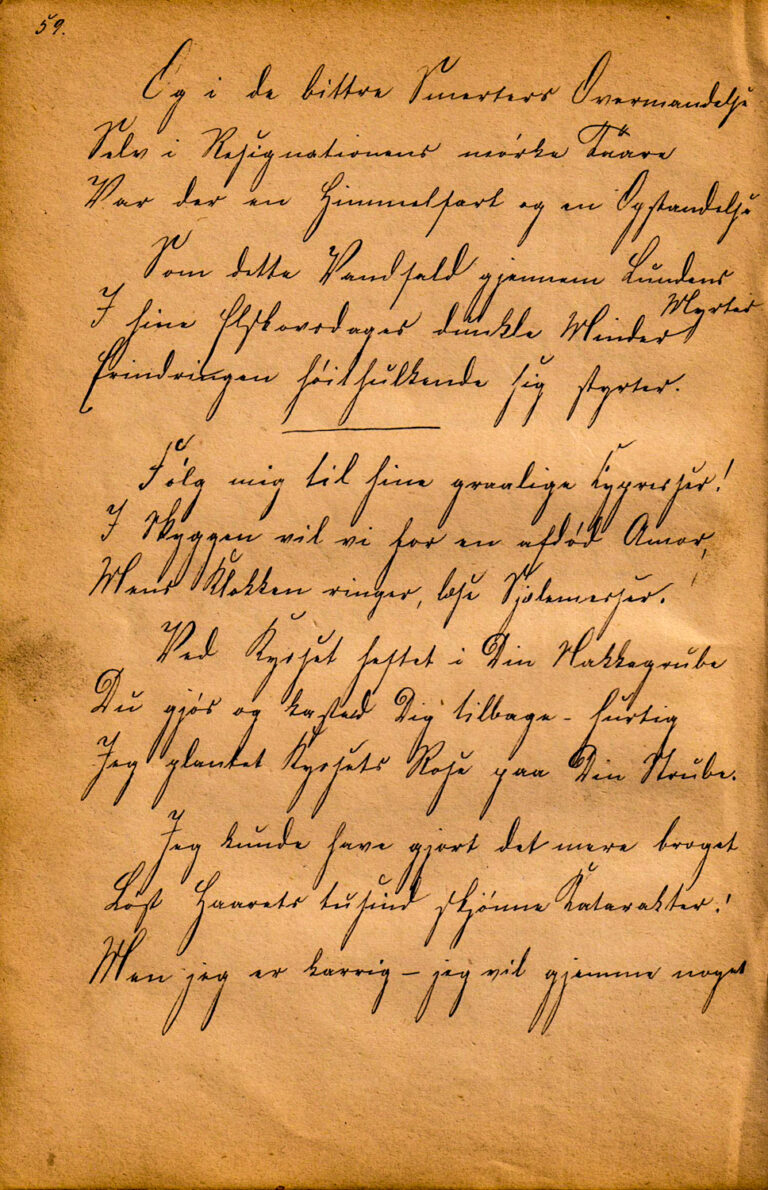 59.
Og i de bittre Smerters Overmandelse
Selv i Resignationens mörke Taare
Var der en Himmelfart og en Opstandelse
Som dette Vandfald gjennem Lundens
Myrter
I hine Elskovsdages dunkle Minder
Erindringen höithulkende sig styrter.
Fölg mig til hine graalige Cypresser!
I Skyggen vil vi for en afdöd Amor,
Mens Klokken ringer, læse Sjælemesser.
Ved Kysset heftet i Din Nakkegrube
Du gjös og kasted Dig tilbage – hurtig
Jeg plantet Kyssets Rose paa Din Strube.
Jeg kunde have gjort det mere broget
Löst Haarets tusind skjönne Katarakter!
Men jeg er karrig – jeg vil gjemme noget